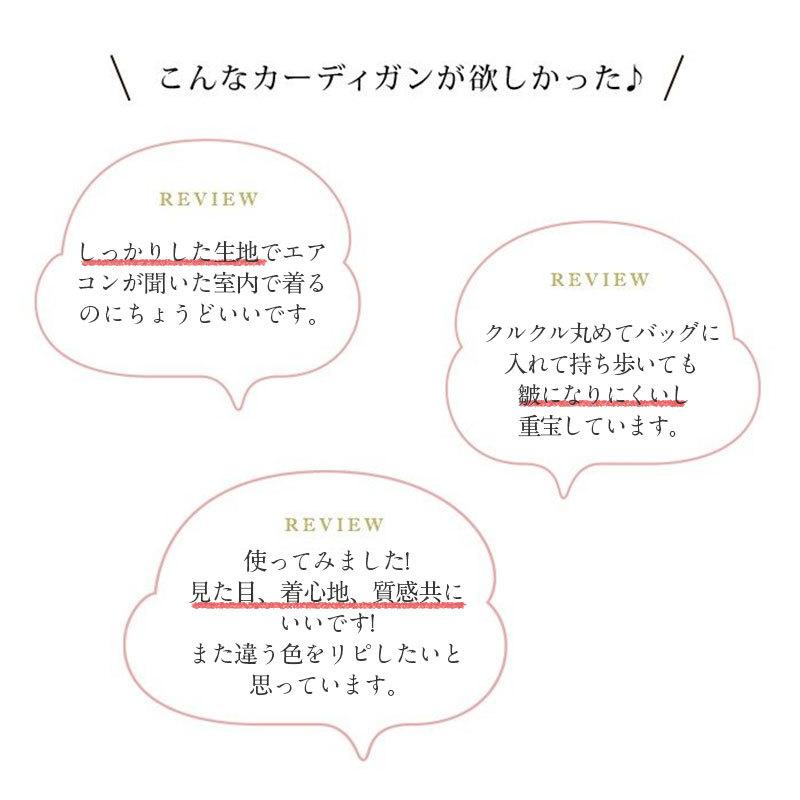 こんなカーディガンが欲しかった♪
REVIEW
しっかりした生地でエア
コンが聞いた室内で着る
のにちょうどいいです。
REVIEW
クルクル丸めてバッグに
入れて持ち歩いても
皺になりにくいし
重宝しています。
REVIEW
使ってみました!
見た目、着心地、質感共に
いいです!
また違う色をリピしたいと
思っています。